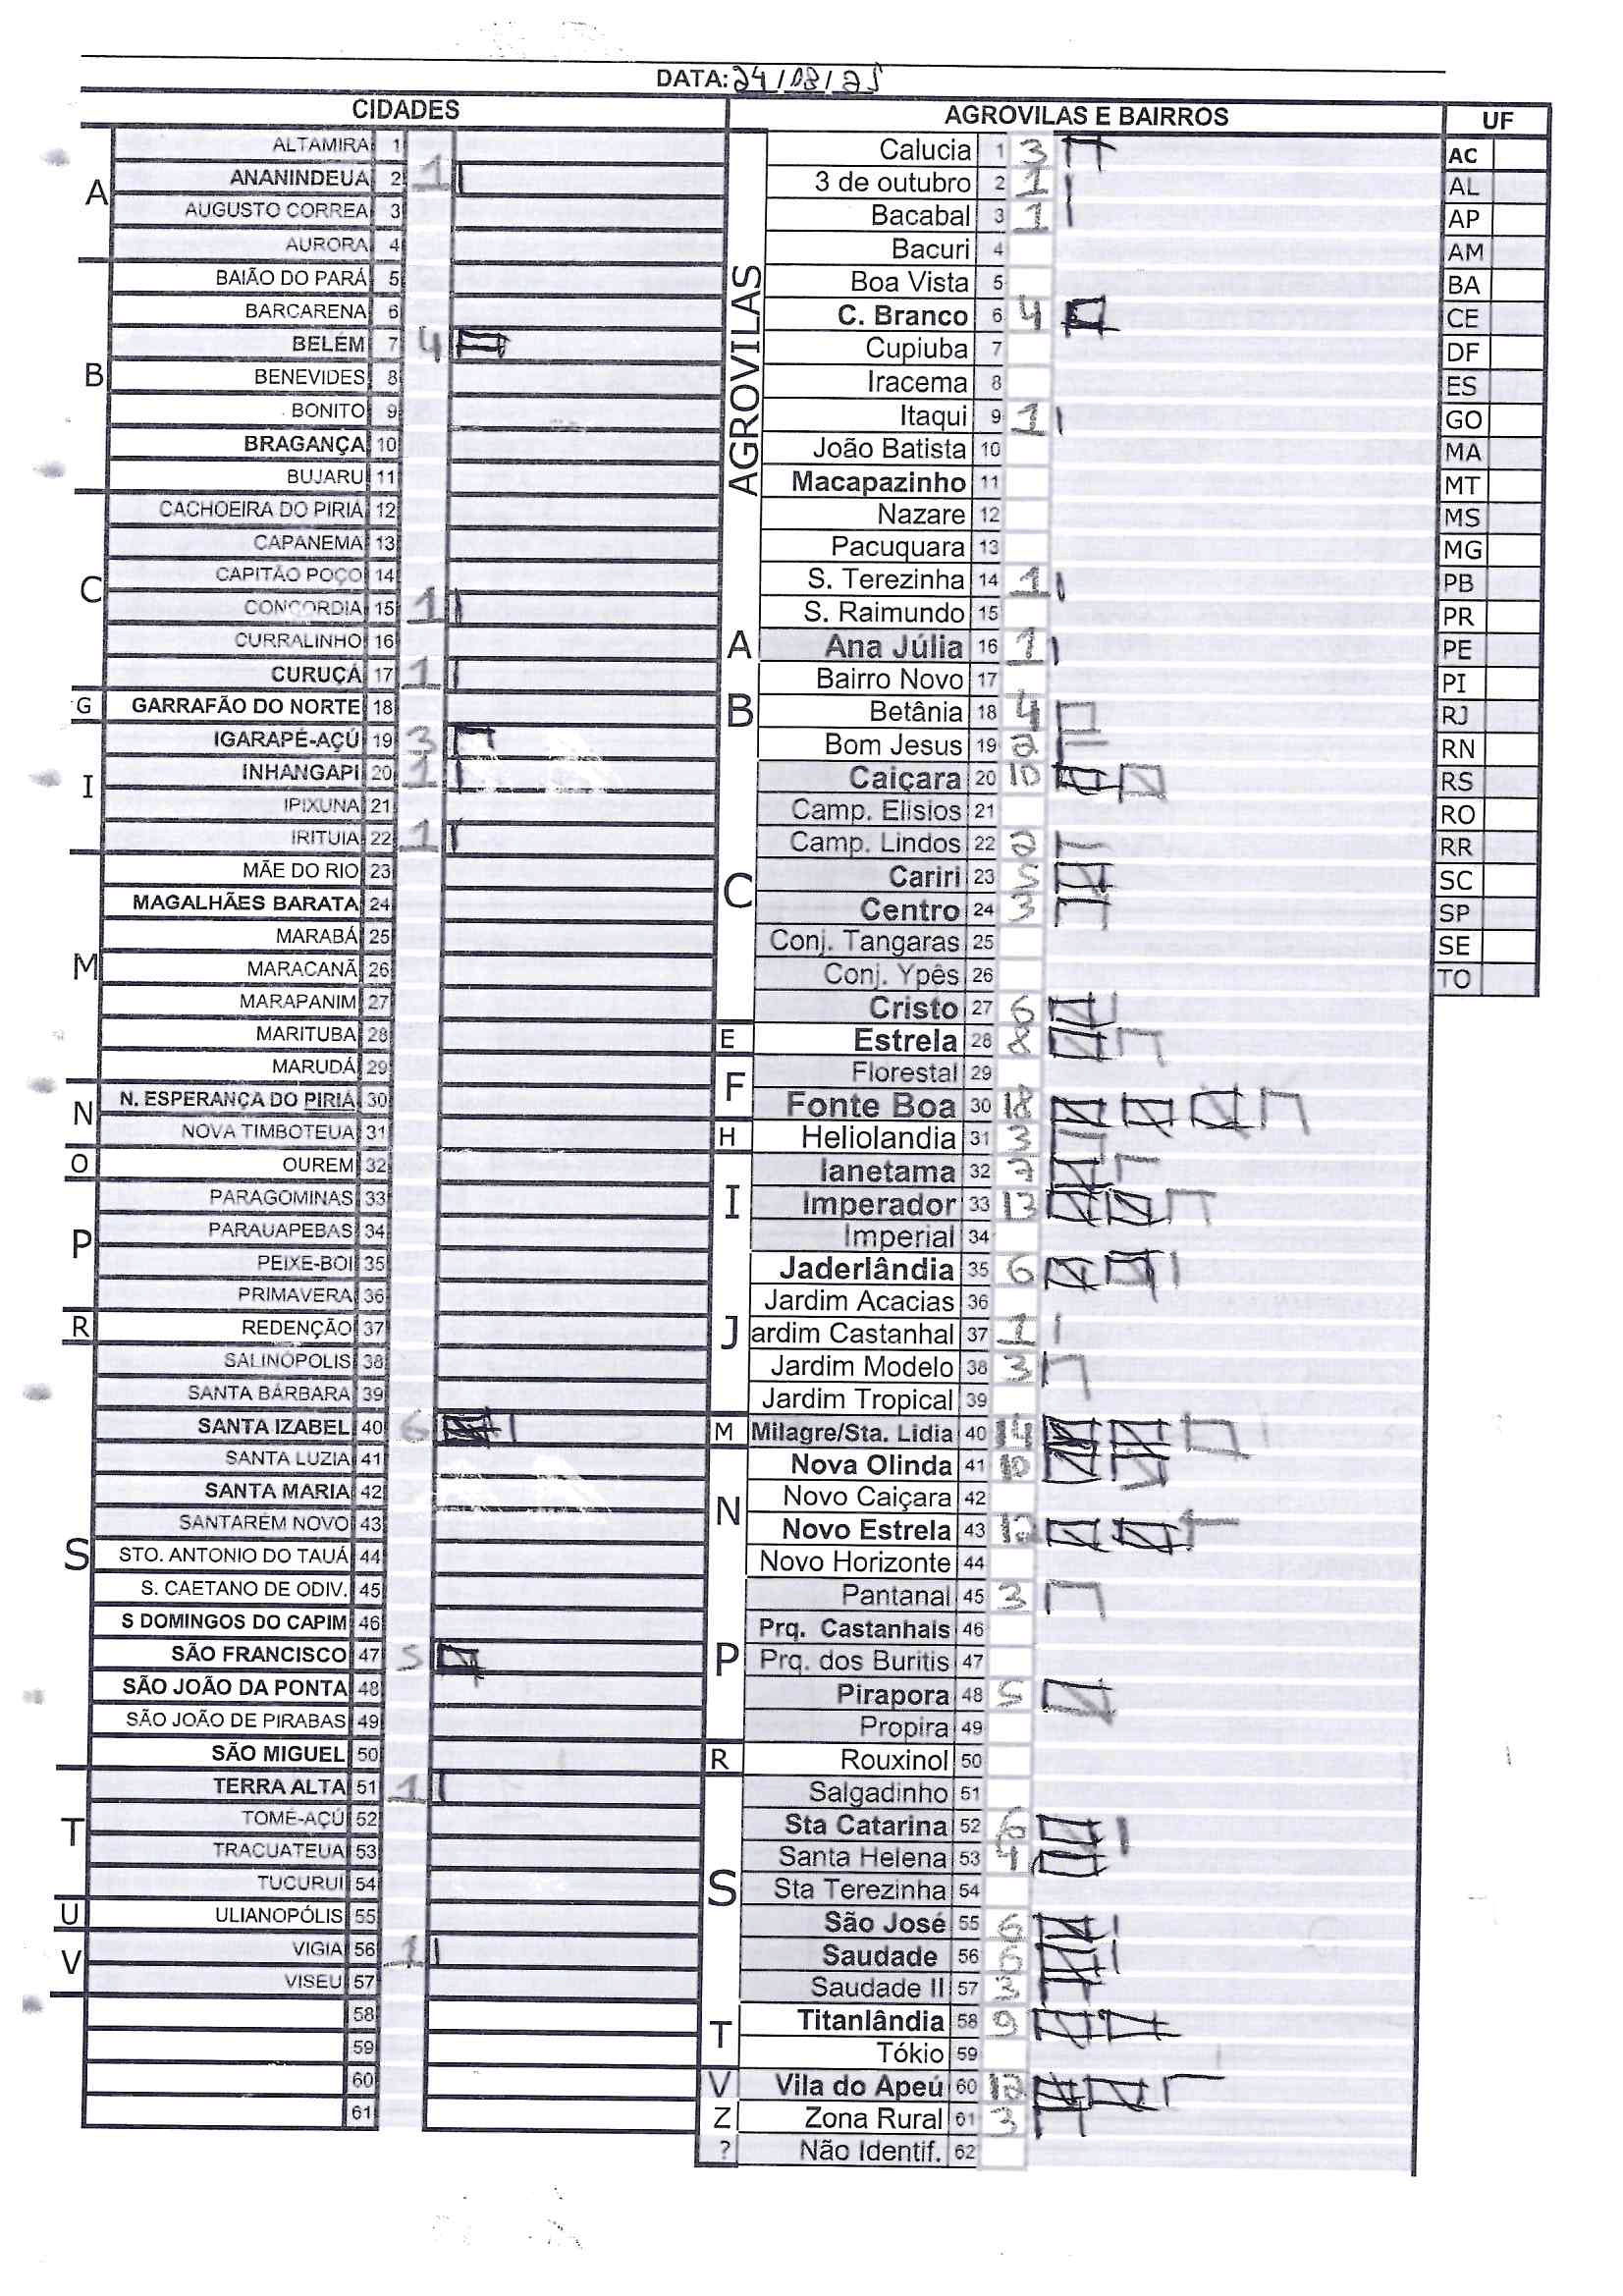 DATA: 24/08/25
CIDADES
A
ALTAMIRA 1
ANANINDEUA 2 1
AUGUSTO CORREA 3
AURORA 4
B
BAIÃO DO PARÁ 5
BARCARENA 6
BELÉM 7 4
BENEVIDES 8
BONITO 9
BRAGANÇA 10
BUJARU 11
C
CACHOEIRA DO PIRIÁ 12
CAPANEMA 13
CAPITÃO POÇO 14
CONCORDIA 15 1
CURRALINHO 16
CURUÇÁ 17 1
G
GARRAFÃO DO NORTE 18
I
IGARAPÉ-AÇÚ 19 3
INHANGAPI 20 1
IPIXUNA 21
IRITUIA 22 1
M
MÃE DO RIO 23
MAGALHÃES BARATA 24
MARABÁ 25
MARACANÃ 26
MARAPANIM 27
MARITUBA 28
MARUDÁ 29
N
N. ESPERANÇA DO PIRIÁ 30
NOVA TIMBOTEUA 31
O
OUREM 32
P
PARAGOMINAS 33
PARAUAPEBAS 34
PEIXE-BOI 35
PRIMAVERA 36
R
REDENÇÃO 37
S
SALINÓPOLIS 38
SANTA BÁRBARA 39
SANTA IZABEL 40 6
SANTA LUZIA 41
SANTA MARIA 42
SANTARÉM NOVO 43
STO. ANTONIO DO TAUÁ 44
S. CAETANO DE ODIV. 45
S DOMINGOS DO CAPIM 46
SÃO FRANCISCO 47 5
SÃO JOÃO DA PONTA 48
SÃO JOÃO DE PIRABAS 49
SÃO MIGUEL 50
T
TERRA ALTA 51 1
TOMÉ-AÇÚ 52
TRACUATEUA 53
TUCURUI 54
U
ULIANOPÓLIS 55
V
VIGIA 56 1
VISEU 57
58
59
60
61
AGROVILAS E BAIRROS
AGROVILAS
Calucia 1 3
3 de outubro 2 1
Bacabal 3 1
Bacuri 4
Boa Vista 5
C. Branco 6 4
Cupiuba 7
Iracema 8
Itaqui 9 1
João Batista 10
Macapazinho 11
Nazare 12
Pacuquara 13
S. Terezinha 14 1
S. Raimundo 15
A
Ana Júlia 16 1
B
Bairro Novo 17
Betânia 18 4
Bom Jesus 19 2
C
Caiçara 20 10
Camp. Elisios 21
Camp. Lindos 22 2
Cariri 23 5
Centro 24 3
Conj. Tangaras 25
Conj. Ypês 26
Cristo 27 6
E
Estrela 28 8
F
Florestal 29
Fonte Boa 30 18
H
Heliolandia 31 3
I
Ianetama 32
Imperador 33 13
Imperial 34
J
Jaderlândia 35 6
Jardim Acacias 36
ardim Castanhal 37 1
Jardim Modelo 38 3
Jardim Tropical 39
M
Milagre/Sta. Lidia 40 14
N
Nova Olinda 41 10
Novo Caiçara 42
Novo Estrela 43 12
Novo Horizonte 44
P
Pantanal 45 3
Prq. Castanhais 46
Prq. dos Buritis 47
Pirapora 48 5
Propira 49
R
Rouxinol 50
S
Salgadinho 51
Sta Catarina 52 6
Santa Helena 53 4
Sta Terezinha 54
São José 55 6
Saudade 56
Saudade II 57 3
T
Titanlândia 58 9
Tókio 59
V
Vila do Apeú 60 12
Z
Zona Rural 61 3
?
Não Identif. 62
UF
AC
AL
AP
AM
BA
CE
DF
ES
GO
MA
MT
MS
MG
PB
PR
PE
PI
RJ
RN
RS
RO
RR
SC
SP
SE
TO